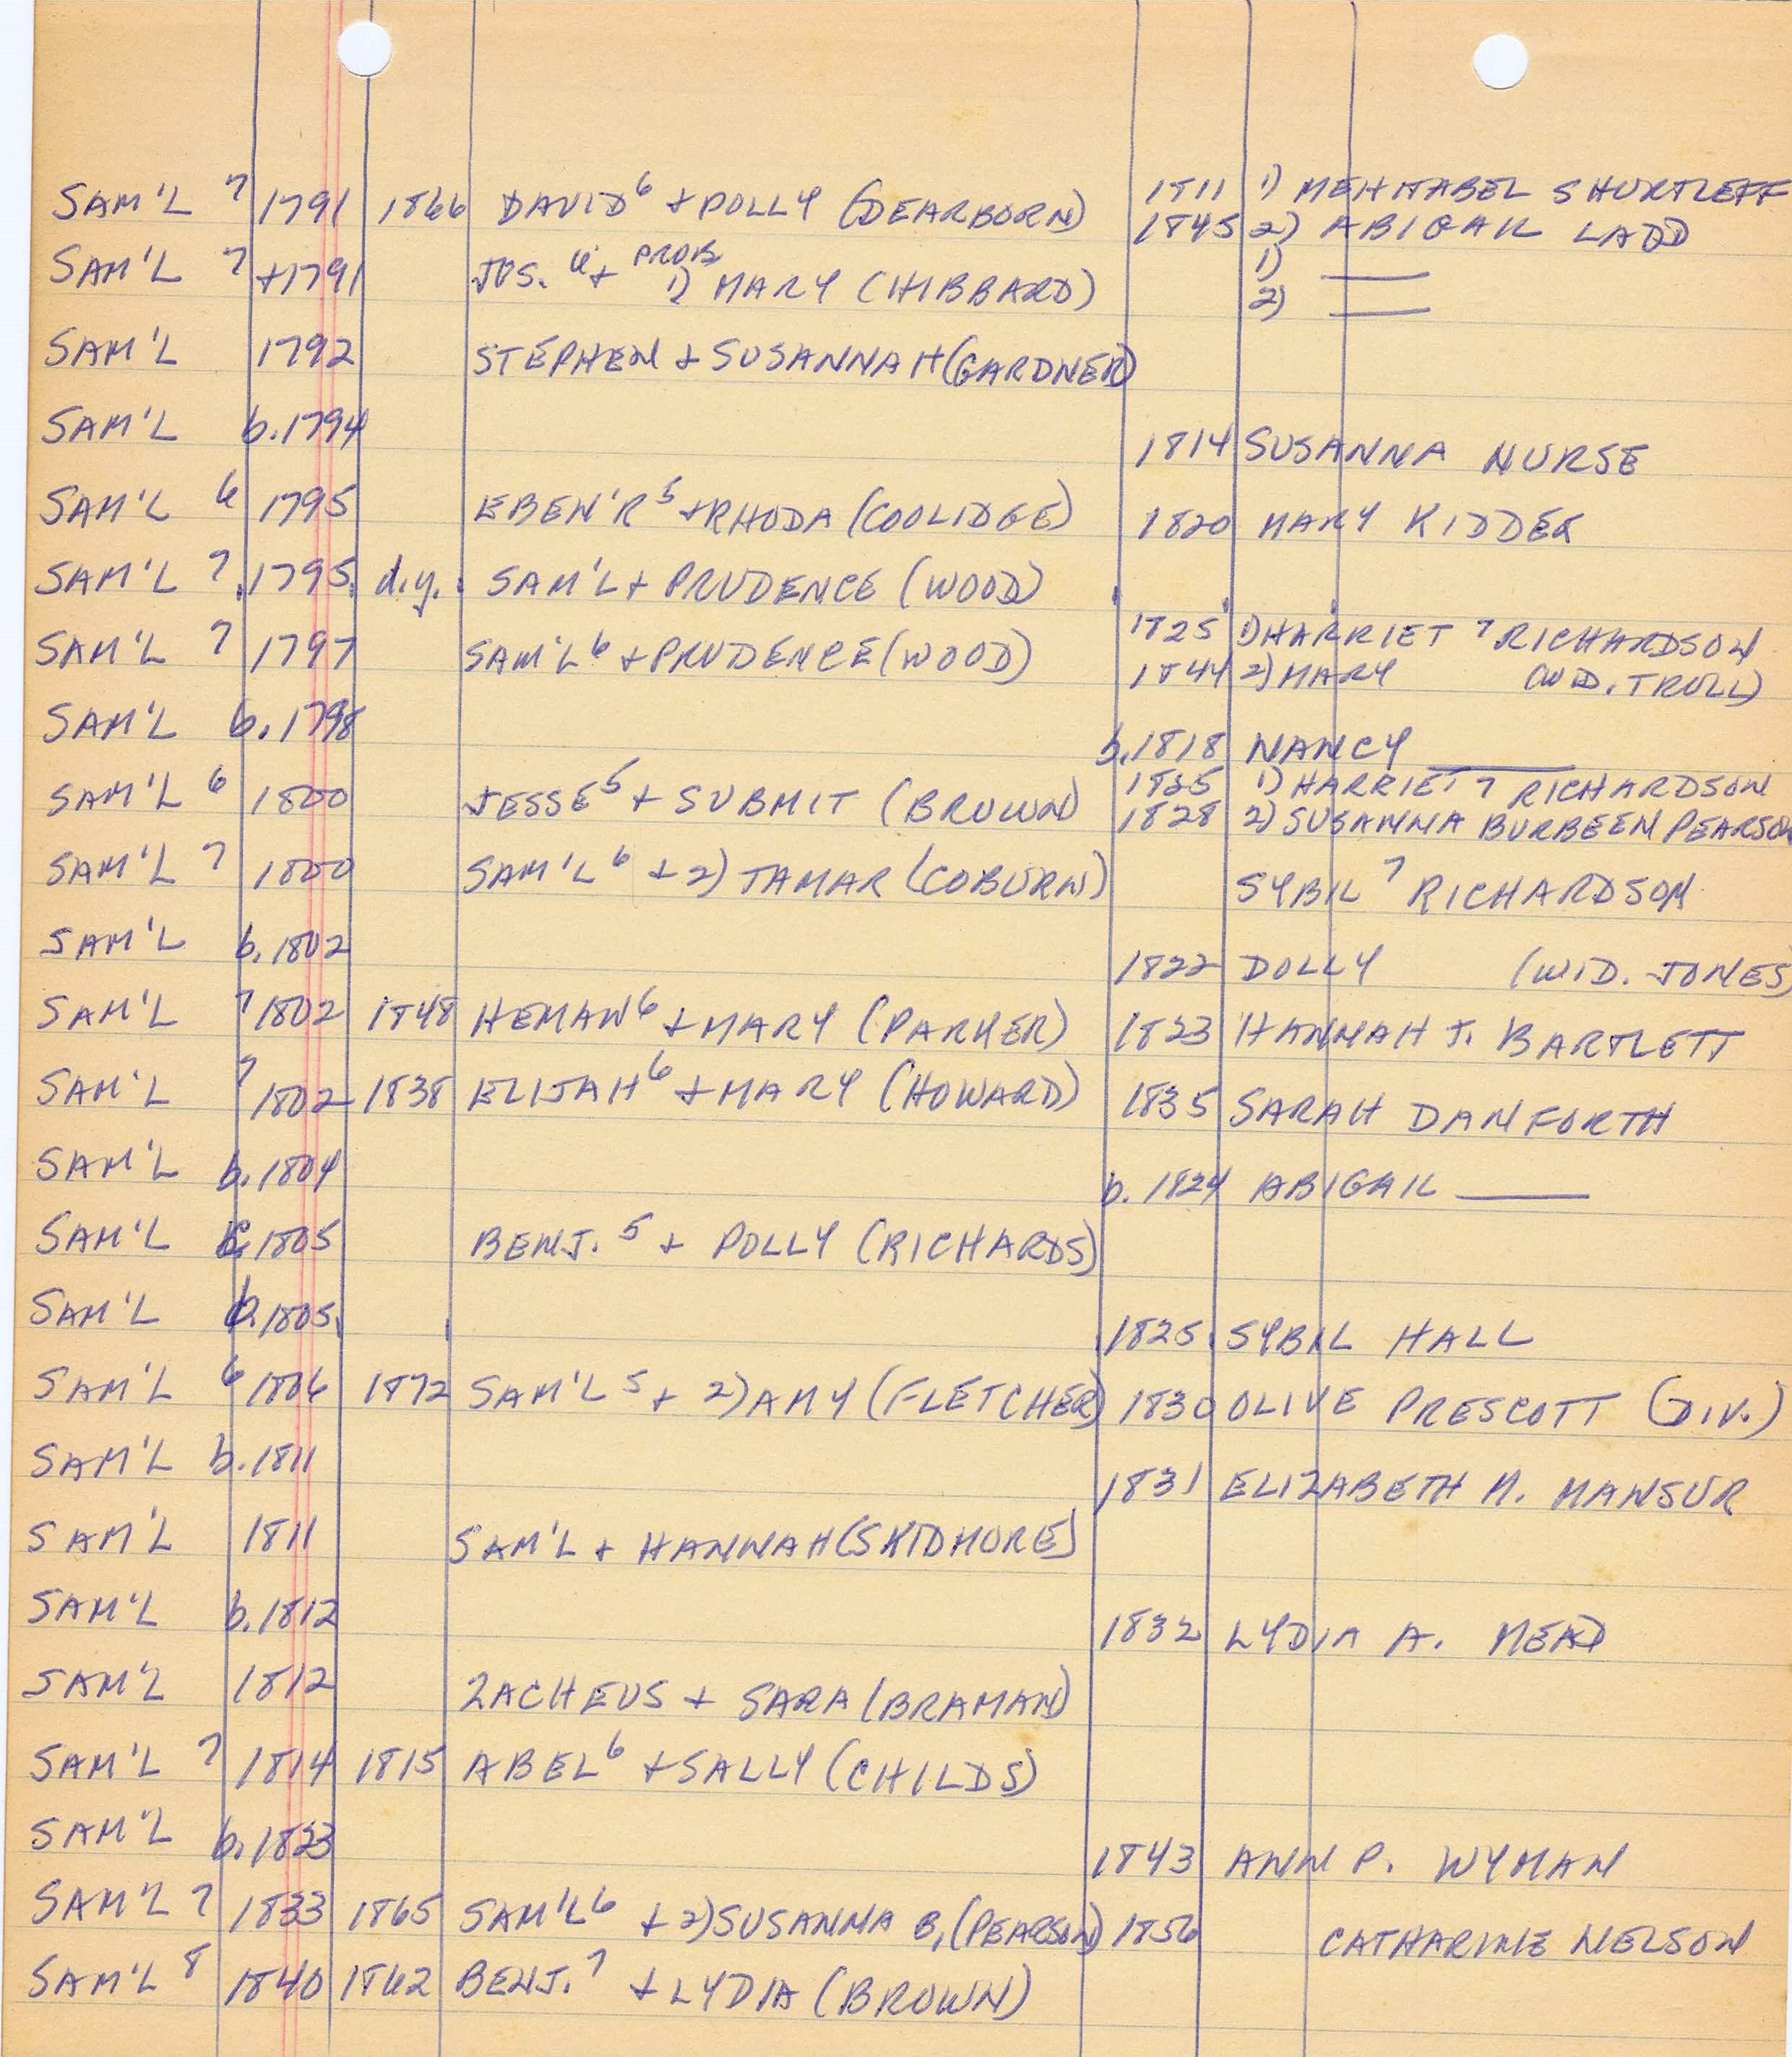 SAM'L 7 1791 1866 DAVID 6 + POLLY (DEARBORN) 1811 1) MEHITABEL SHURTLEFF
1845 2) ABIGAIL LADD
SAM'L 7 +1791 JOS. 6 + PROB 1) MARY (HIBBARD) 1) ——
2) ——
SAM'L 1792 STEPHEN + SUSANNAH (GARDNER)
SAM'L b.1794 1814 SUSANNA NURSE
SAM'L 6 1795 EBEN'R 5 + RHODA (COOLIDGE) 1820 MARY KIDDER
SAM'L 7 1795 d.y. SAM'L + PRUDENCE (WOOD)
SAM'L 7 1797 SAM'L 6 + PRUDENCE (WOOD) 1825 1) HARRIET 7 RICHARDSON
1844 2) MARY (WID. TRULL)
SAM'L b.1798 b.1818 NANCY ——
SAM'L 6 1800 JESSE 5 + SUBMIT (BROWN) 1825 1) HARRIET 7 RICHARDSON
1828 2) SUSANNA BURBEEN PEARSON
SAM'L 7 1800 SAM'L 6 + 2) TAMAR (COBURN) SYBIL 7 RICHARDSON
SAM'L b.1802 1822 DOLLY (WID. JONES)
SAM'L 7 1802 1848 HEMAN 6 + MARY (PARKER) 1823 HANNAH J. BARTLETT
SAM'L 7 1802 1838 ELIJAH 6 + MARY (HOWARD) 1835 SARAH DANFORTH
SAM'L b.1804 b. 1824 ABIGAIL ——
SAM'L c.1805 BENJ. 5 + POLLY (RICHARDS)
SAM'L b.1805 1825 SYBIL HALL
SAM'L 6 1806 1872 SAM'L 5 + 2) AMY (FLETCHER) 1830 OLIVE PRESCOTT (DIV.)
SAM'L b.1811 1831 ELIZABETH M. MANSUR
SAM'L 1811 SAM'L + HANNAH (SKIDMORE)
SAM'L b.1812 1832 LYDIA A. MEAD
SAM'L 1812 ZACHEUS + SARA (BRAMAN)
SAM'L 7 1814 1815 ABEL 6 + SALLY (CHILDS)
SAM'L b.1823 1843 ANN P. WYMAN
SAM'L 7 1833 1865 SAM'L 6 + 2) SUSANNA B. (PEARSON) 1856 CATHARINE NELSON
SAM'L 8 1840 1862 BENJ. 7 + LYDIA (BROWN)